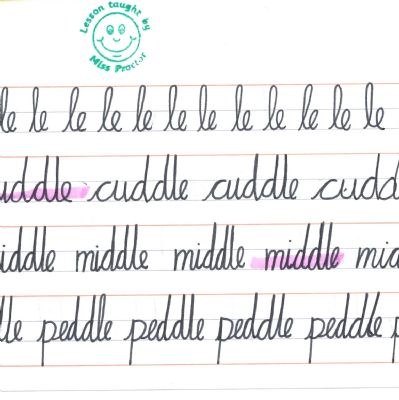 Lesson taught by
Miss Proctor
le le le le le le le le le le le
cuddle cuddle cuddle cudd
iddle middle middle middle mid
dle peddle peddle peddle peddle p